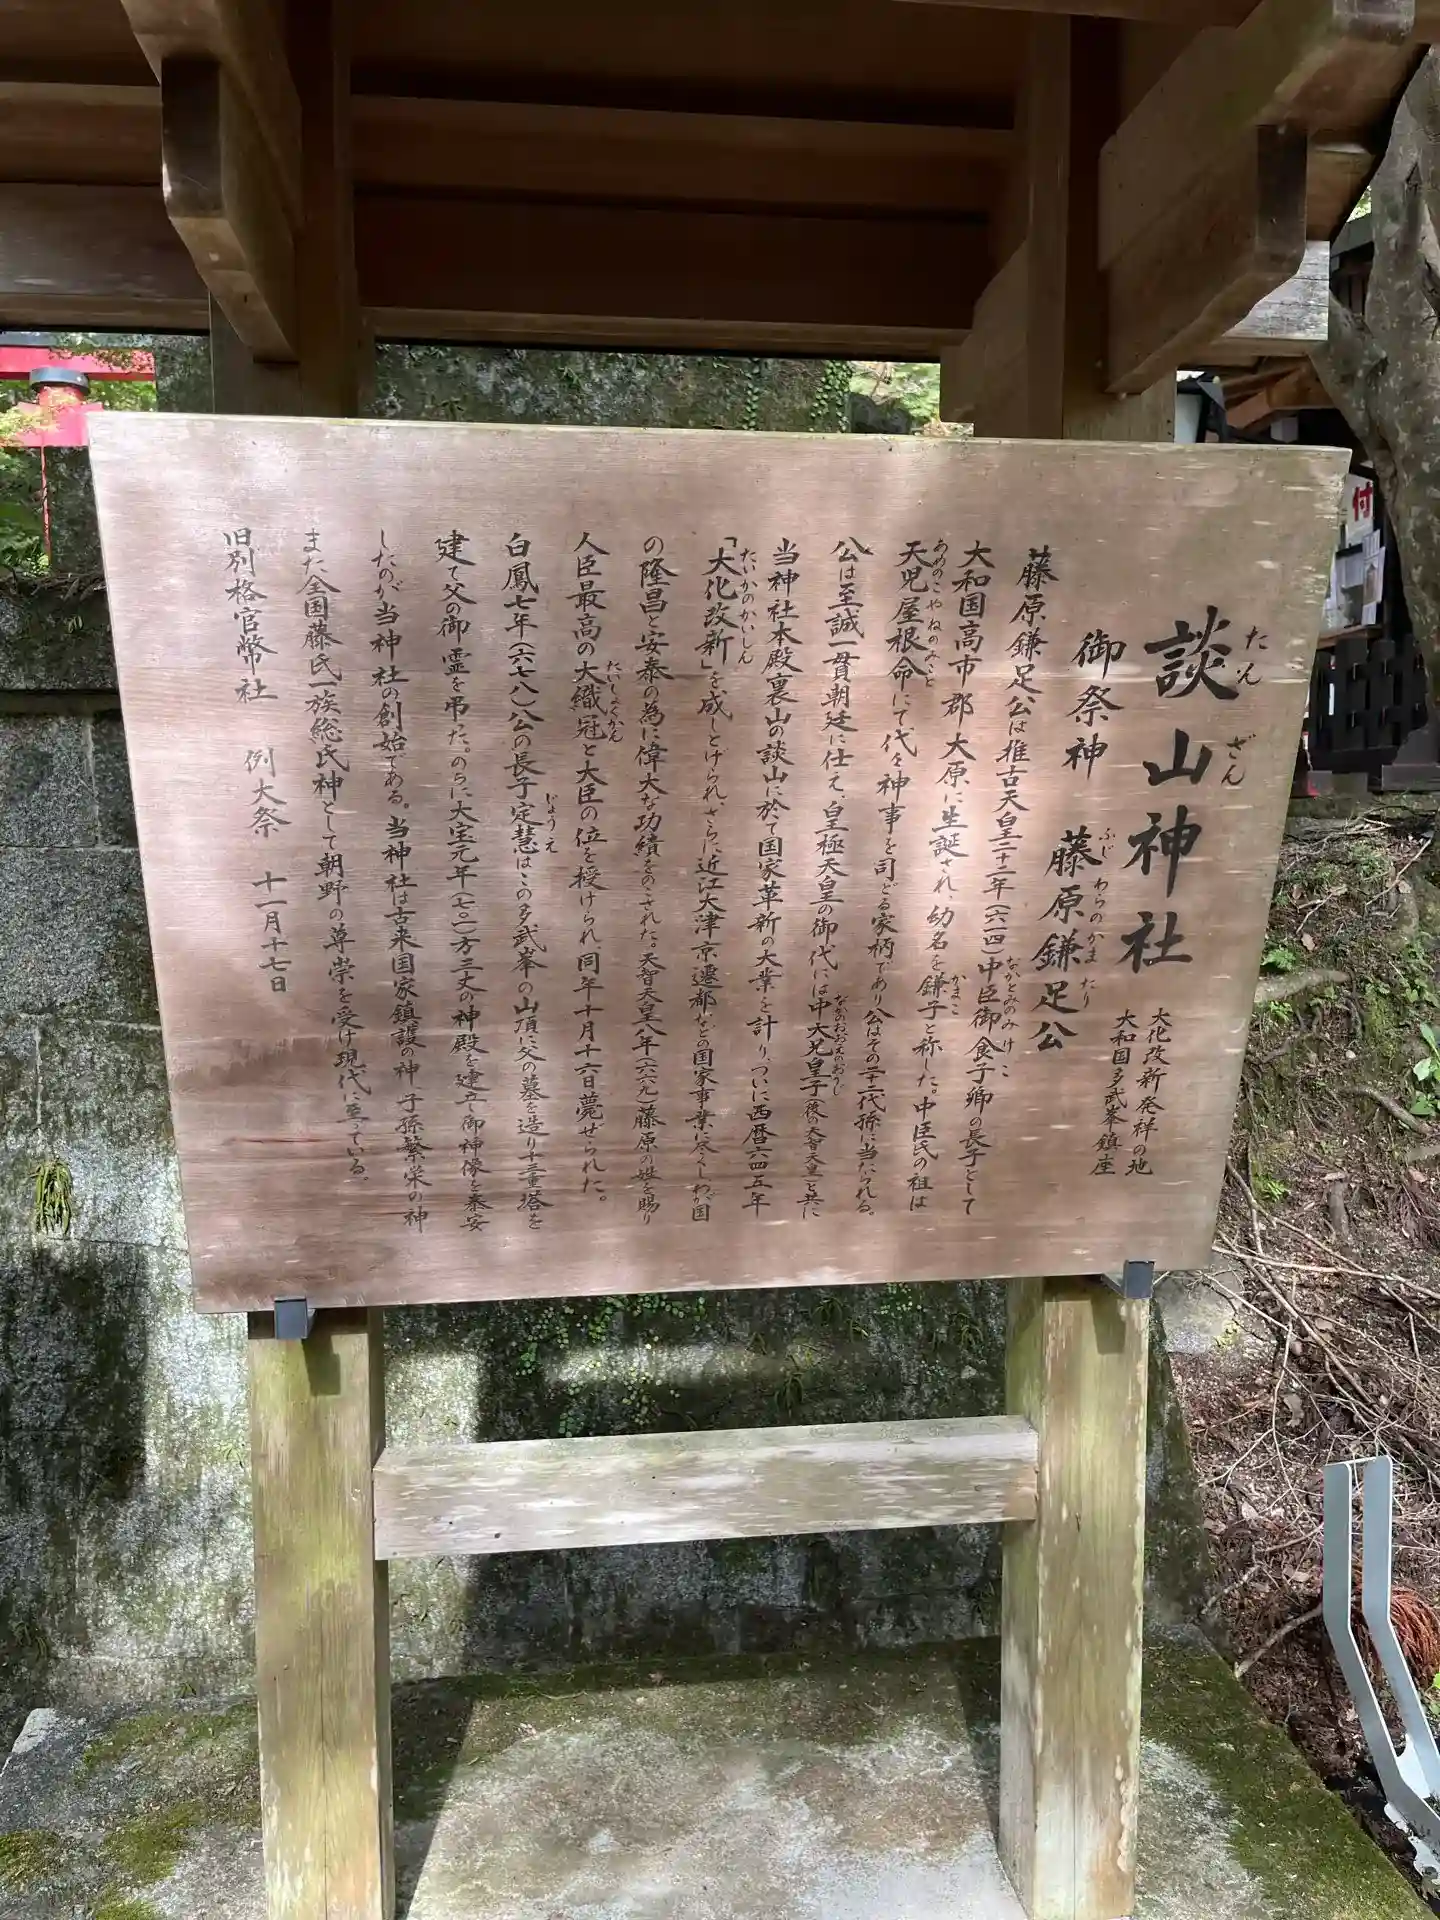 談山神社
たんざん
大化改新発祥の地
大和国多武峯鎮座
御祭神 藤原鎌足公
ふじわらのかまたり
藤原鎌足公は推古天皇二十二年（六一四）中臣御食子卿の長子として
なかとみのみけこ
大和国高市郡大原に生誕され、幼名を鎌子と称した。中臣氏の祖は
かまこ
天児屋根命にて代々神事を司どる家柄であり公はその二十二代孫に当たられる。
あめのこやねのみこと
公は至誠一貫朝廷に仕え、皇極天皇の御代には中大兄皇子（後の天智天皇）と共に
なかのおおえのおうじ
当神社本殿裏山の談山に於て国家革新の大業を計り、ついに西暦六四五年
「大化改新」を成しとげられ、さらに近江大津京遷都などの国家事業に尽くしわが国
たいかのかいしん
の隆昌と安泰の為に偉大な功績をのこされた。天智天皇八年（六六九）藤原の姓を賜り
人臣最高の大織冠と大臣の位を授けられ、同年十月十六日薨ぜられた。
たいしょくかん
白鳳七年（六七八）公の長子定慧はこの多武峯の山頂に父の墓を造り十三重塔を
じょうえ
建て父の御霊を弔た。のちに大宝元年（七〇一）方三丈の神殿を建立し御神像を奉安
したのが当神社の創始である。当神社は古来国家鎮護の神、子孫繁栄の神
また全国藤氏一族総氏神として朝野の尊崇を受け現代に至っている。
旧別格官幣社 例大祭 十一月十七日
付